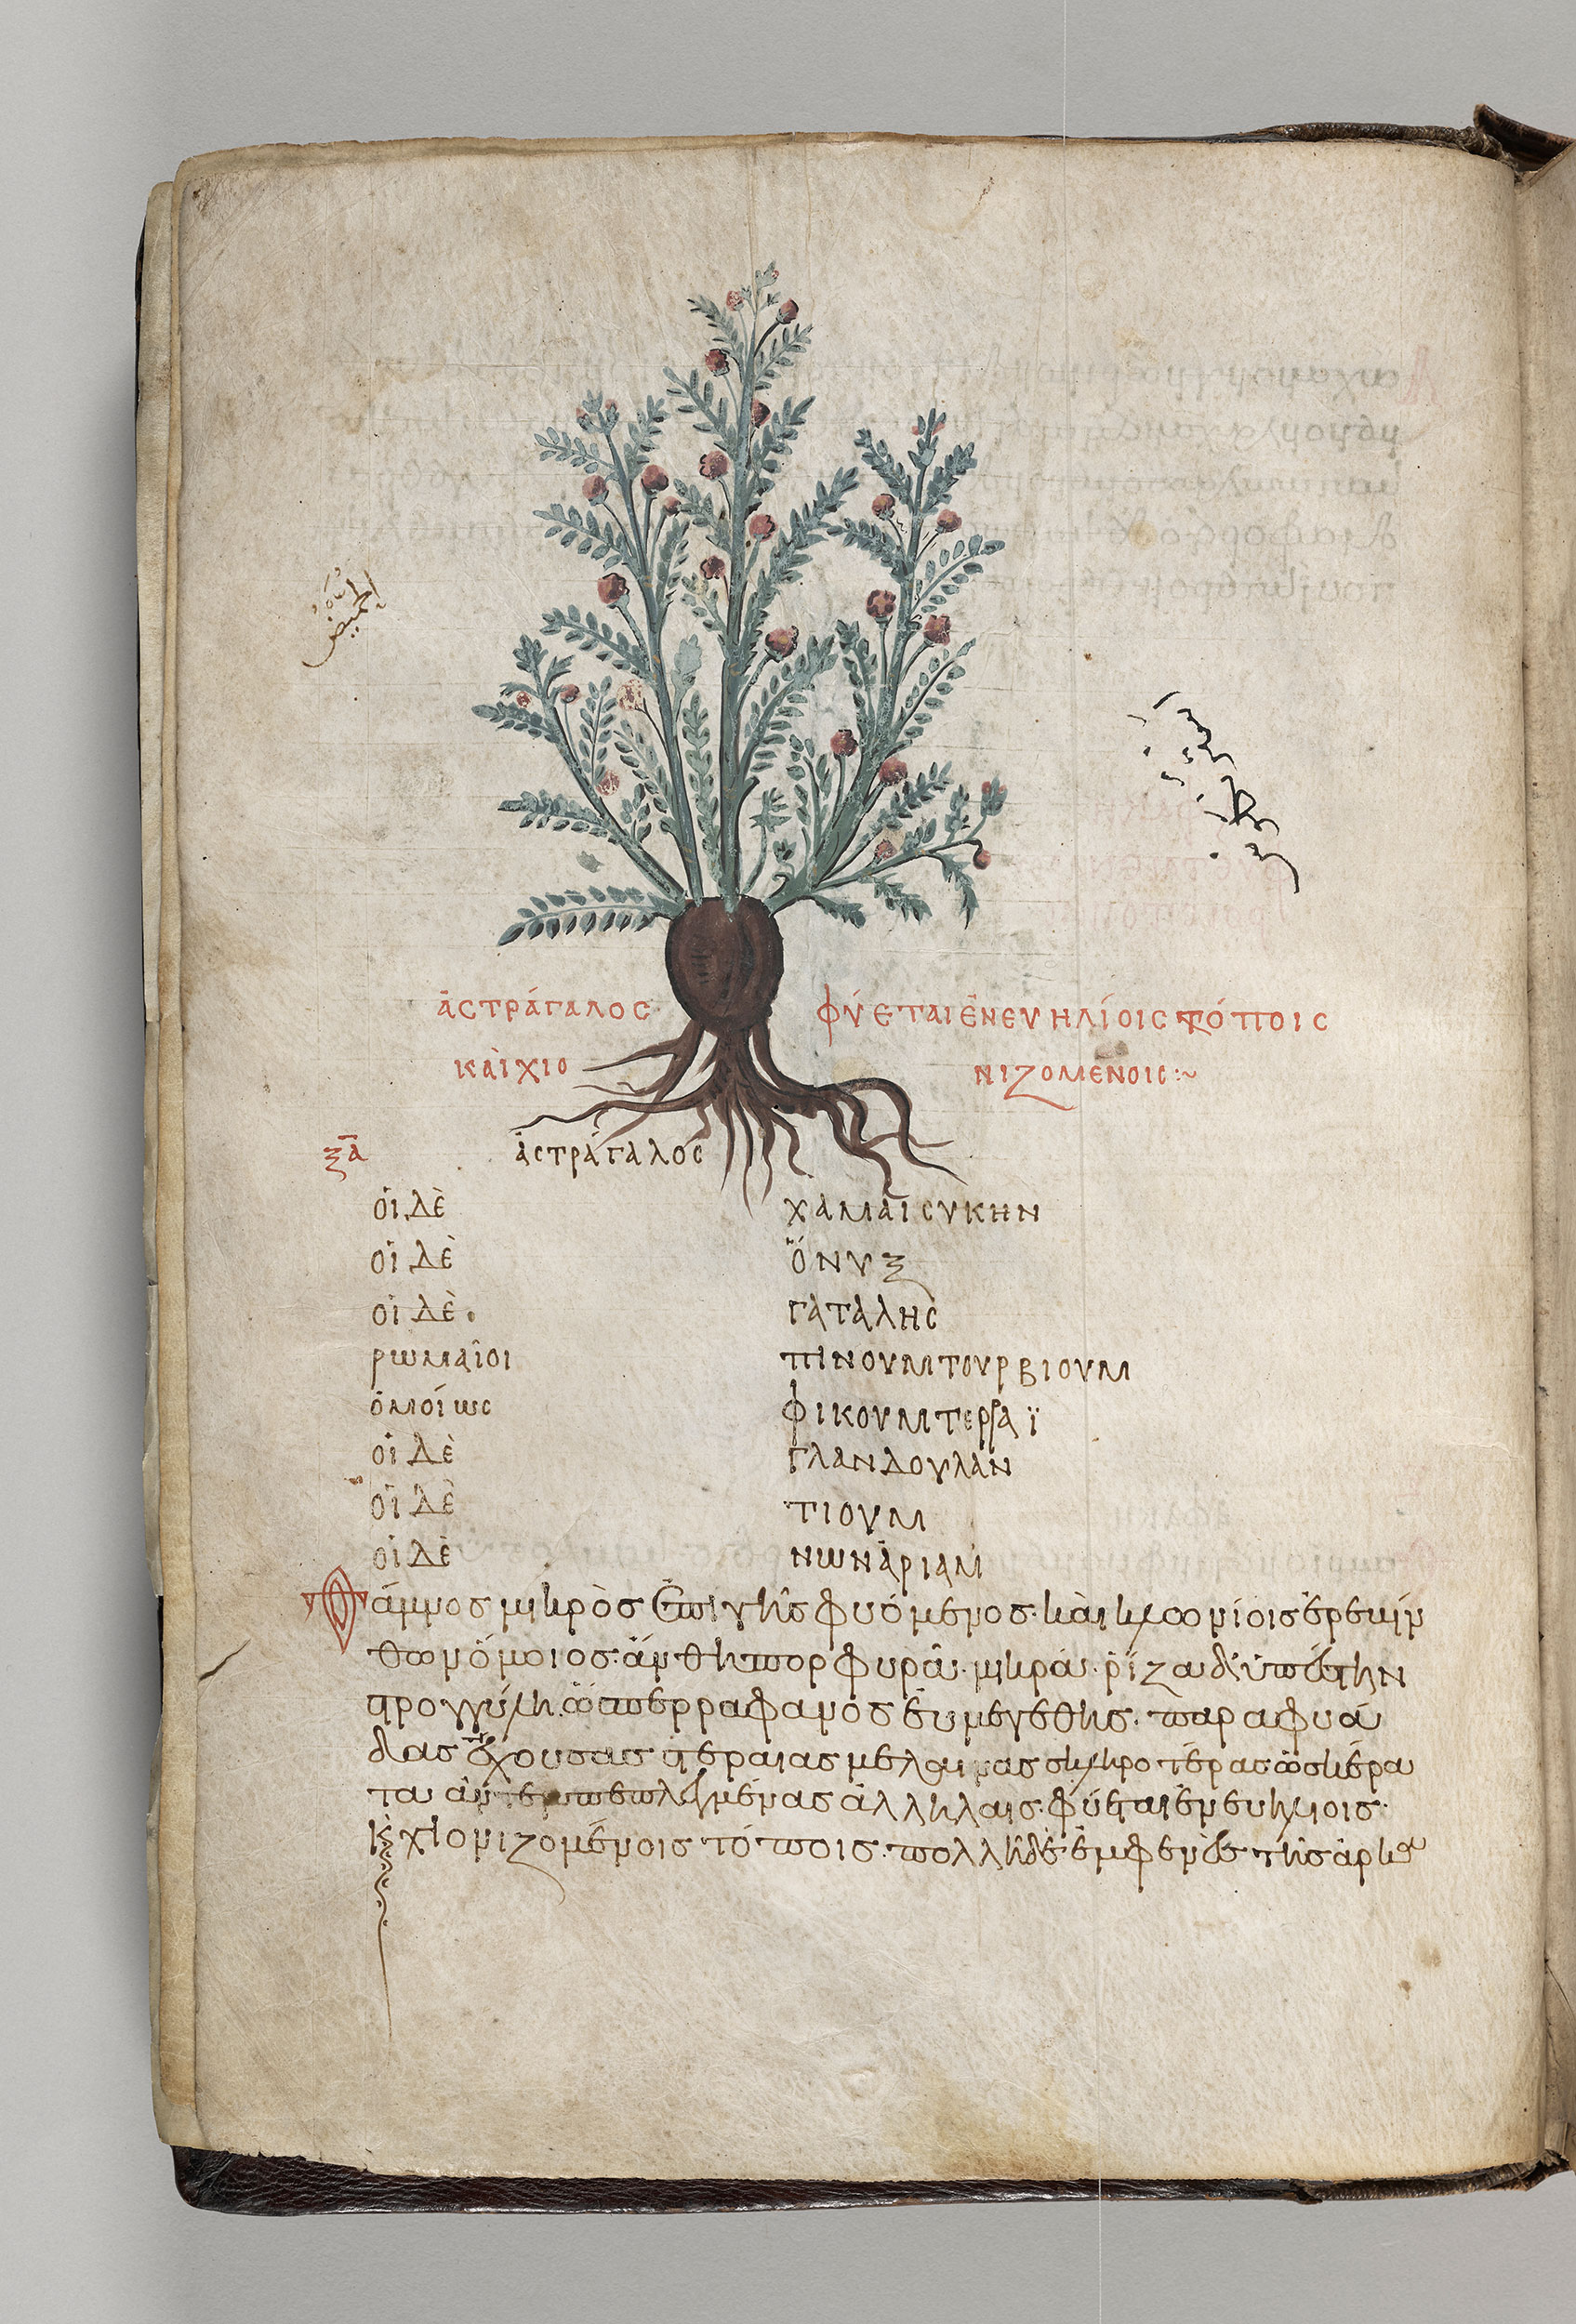 ἀστράγαλος φύεται ἐν εὐηλίοις τόποις
καὶ χιο νιζομένοις:~
ξα ἀστράγαλος
οἱ δὲ χαμαισυκην
οἱ δὲ ὄνυξ
οἱ δὲ γαταλης
ρωμαῖοι πινουμτουρβιουμ
ὁμοίως φικουμτερραϊ
οἱ δὲ γλανδουλαν
οἱ δὲ τιουμ
οἱ δὲ νωνάριαμ
θάμνος μικρὸς ἐπὶ γῆς φυόμενος· καὶ κλωνίοις ἐρεβίν
θω ὅμοιος· ἄνθη πορφυρᾶ· μικρά· ῥίζα δ' ὕπεστιν
στρογγύλη ὥσπερ ραφανος εὐμεγέθης· παραφυά
δας ἔχουσα στεραιας μελαίνας σκληροτέρας ὡς κέρα
τα ἀλλήλαις· φύεται ἐν εὐηλίοις·
κ χιονιζομένοις τόποις· πολλὴ δὲ ἐν φενεῶ τῆς ἀρκα